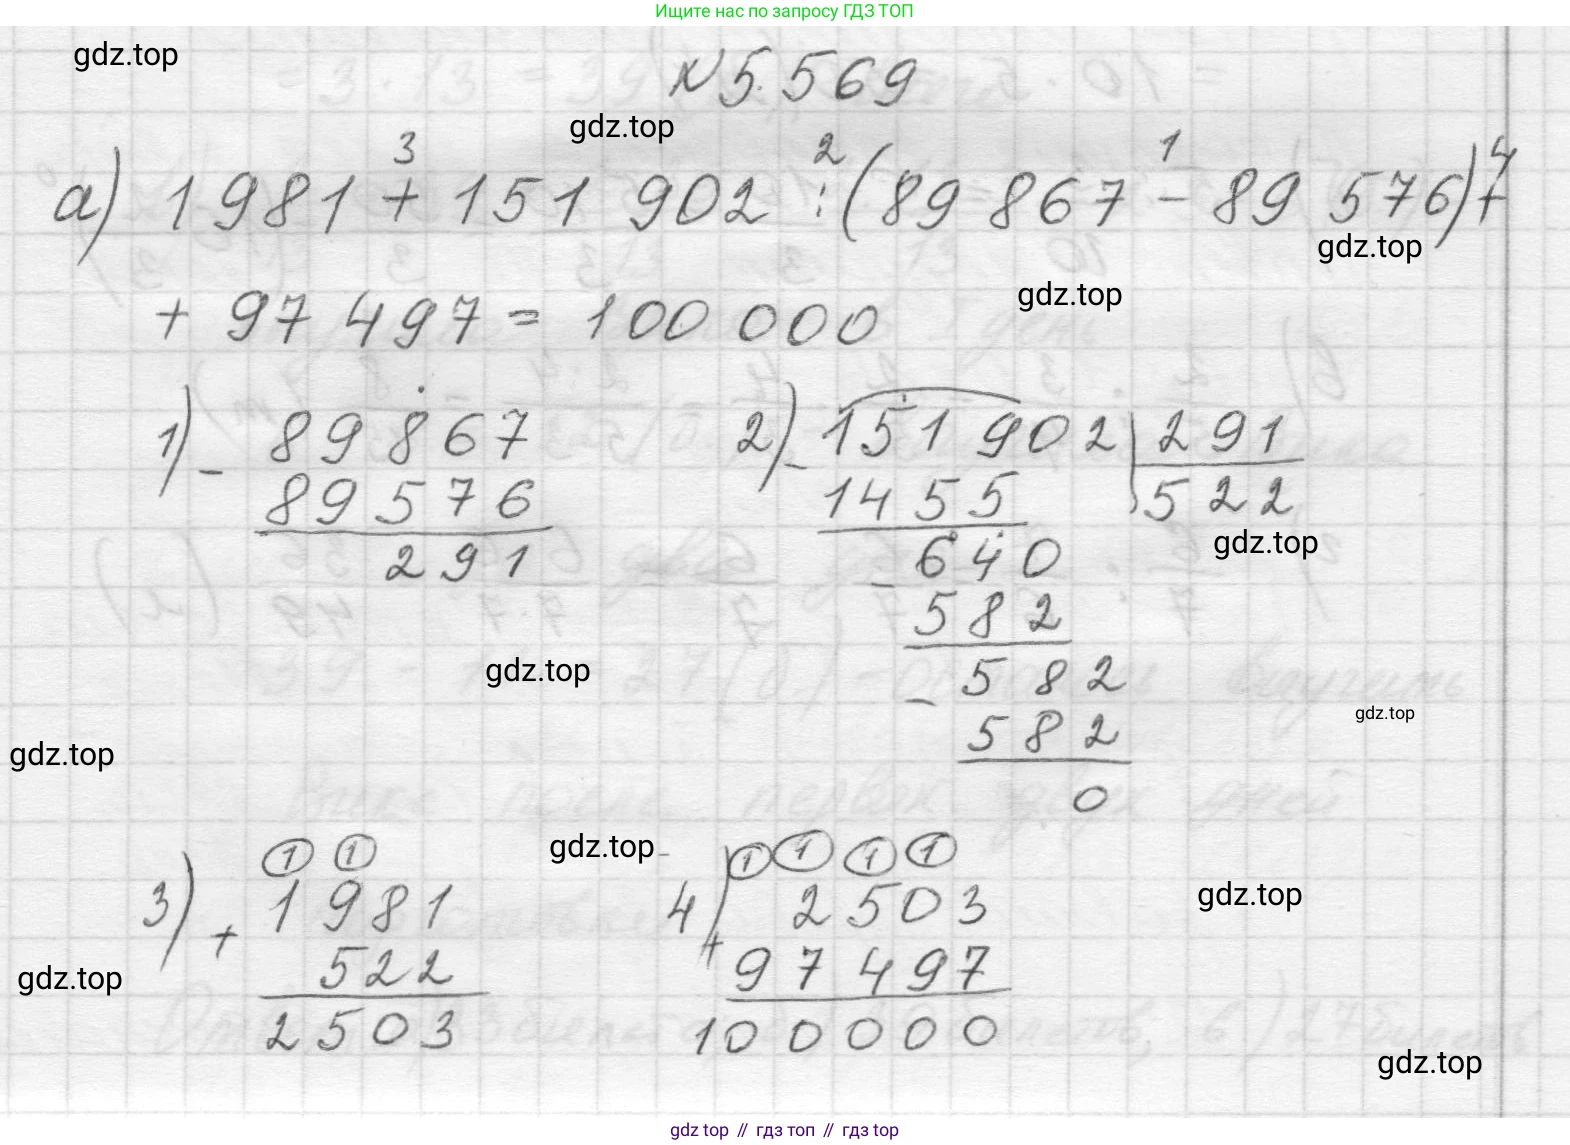 Ищите нас по запросу ГДЗ ТОП
gdz.top
N 5.569
gdz.top
3 2 1 4
а) 1981 + 151 902 : (89 867 - 89 576) +
gdz.top
gdz.top
+ 97 497 = 100 000
1) - 89867
89576
291
2) - 151902 | 291
1455 522
gdz.top
- 640
582
- 582
582
0
gdz.top
gdz.top
gdz.top
gdz.top
1 1
3) + 1981
522
2503
1 1 1 1
4) + 2503
97497
100000
gdz.top
gdz.top
gdz.top
gdz top // гдз топ // гдз top